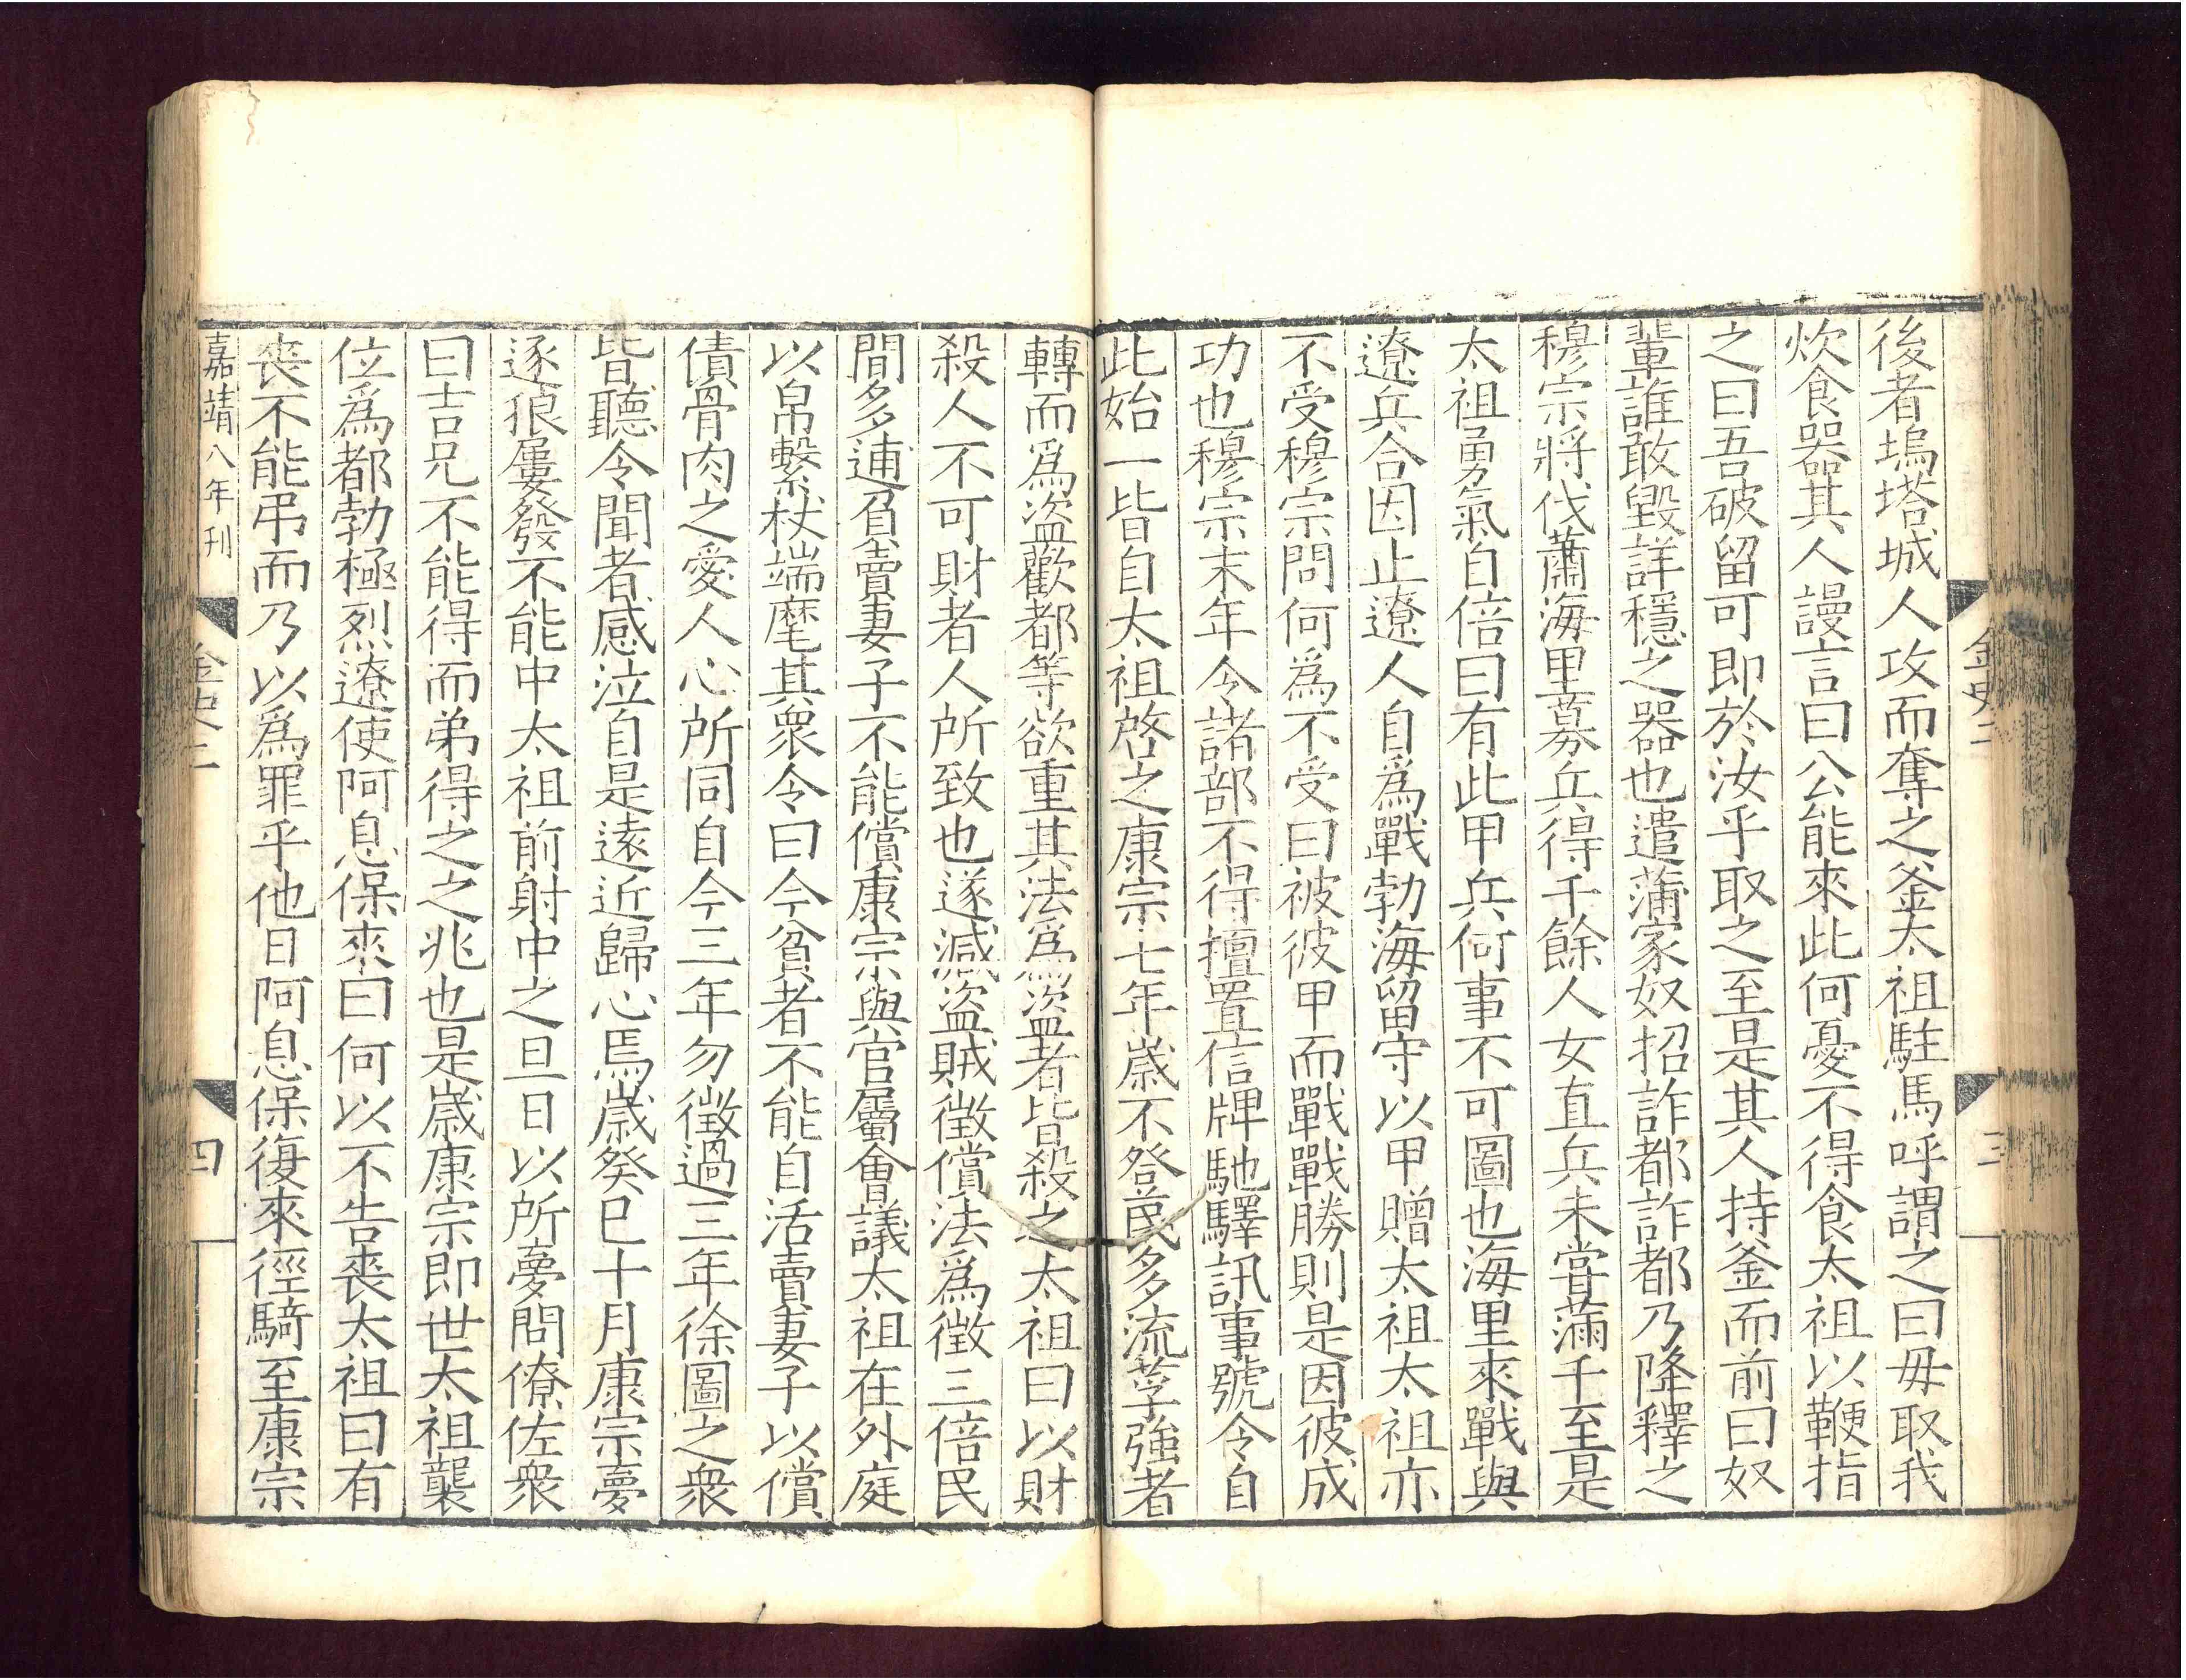 金史二
三
後者塢塔城人攻而奪之釜太祖駐馬呼謂之曰毋取我
炊食器其人謾言曰公能來此何憂不得食太祖以鞭指
之曰吾破留可即於汝乎取之至是其人持釜而前曰奴
輩誰敢毀詳穩之器也遣蒲家奴招詐都詐都乃降釋之
穆宗將伐蕭海里募兵得千餘人女直兵未嘗滿千至是
太祖勇氣自倍曰有此甲兵何事不可圖也海里來戰與
遼兵合因止遼人自爲戰勃海留守以甲贈太祖太祖亦
不受穆宗問何爲不受曰被彼甲而戰戰勝則是因彼成
功也穆宗末年令諸部不得擅置信牌馳驛訊事號令自
此始一皆自太祖啓之康宗七年歲不登民多流莩強者
轉而爲盜歡都等欲重其法爲盜者皆殺之太祖曰以財
殺人不可財者人所致也遂減盜賊徵償法爲徵三倍民
間多逋負賣妻子不能償康宗與官屬會議太祖在外庭
以帛繫杖端麾其衆令曰今貧者不能自活賣妻子以償
債骨肉之愛人心所同自今三年勿徵過三年徐圖之衆
皆聽令聞者感泣自是遠近歸心焉歲癸巳十月康宗夢
逐狼屢發不能中太祖前射中之旦日以所夢問僚佐衆
曰吉兄不能得而弟得之之兆也是歲康宗即世太祖襲
位爲都勃極烈遼使阿息保來曰何以不告喪太祖曰有
喪不能弔而乃以爲罪乎他日阿息保復來徑騎至康宗
嘉靖八年刊
金史二
四